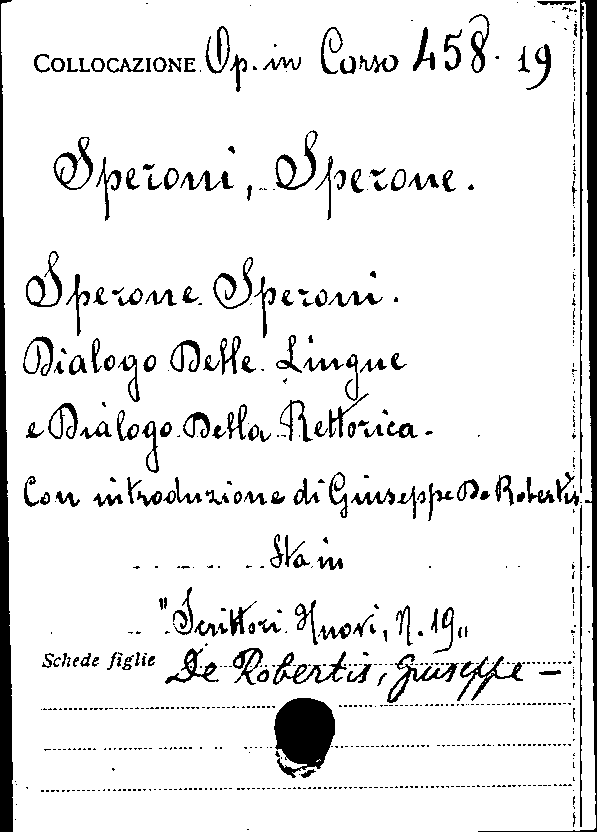 COLLOCAZIONE Op. in Corso 458. 19
Speroni, Sperone.
Sperone Speroni.
Dialogo Delle Lingue
e Dialogo Della Rettorica.
Con introduzione di Giuseppe De Robertis.
Sta in
"Scrittori Nuovi, N. 19"
Schede figlie De Robertis, Giuseppe —